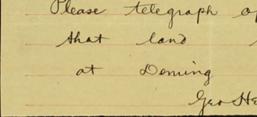 Please telegraph
that land
at Deming
Geo